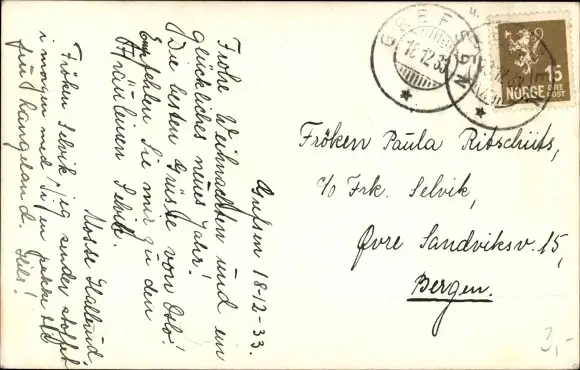 Grefsen 18-12-33.
Frohe Weihnachten und ein
glückliches neues Jahr!
Die besten Grüsse vom Oslo!
Empfehlen Sie mir zu den
Fräuleinen Selvik.
Mosse
Fröken Selvik, jeg sender stoffet
i morgen med Di en pakke til
frk Langeland. Hils!
GREFSEN
18.12.33
GREFSEN
NORGE
15
ØRE
POST
Fröken Paula Ritschits,
c/o Frk. Selvik,
Øvre Sandviksv. 15,
Bergen.
3,-